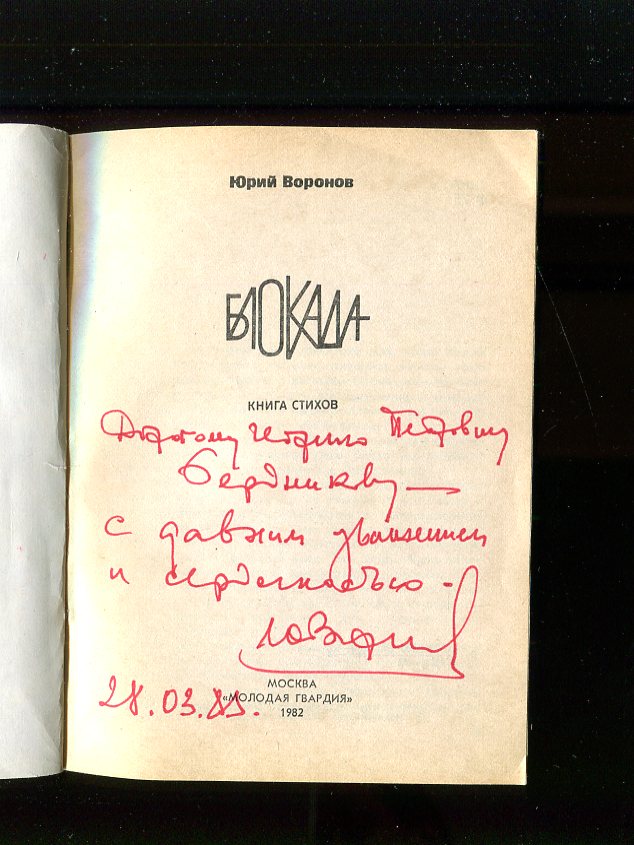 Юрий Воронов
БЛОКАДА
КНИГА СТИХОВ
Дорогому Георгию Петровичу
Бердникову —
с давним уважением
и сердечностью -
ЮВорон
МОСКВА
«МОЛОДАЯ ГВАРДИЯ»
1982
28.03.85.